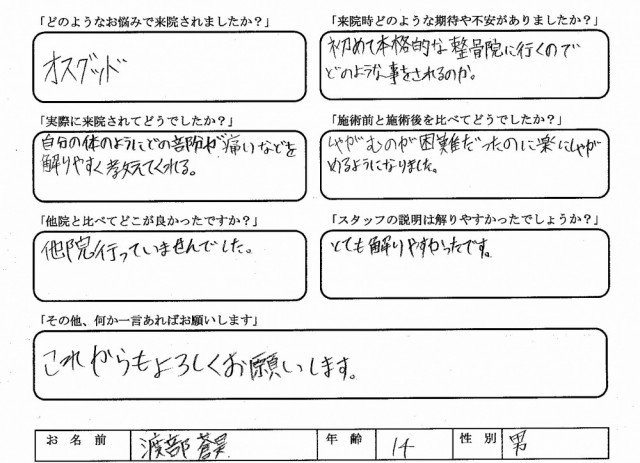 「どのようなお悩みで来院されましたか？」
オスグッド
「来院時どのような期待や不安がありましたか？」
初めて本格的な整骨院に行くので
どのような事をされるのか。
「実際に来院されてどうでしたか？」
自分の体のようにどの部分が痛いなどを
解りやすく教えてくれる。
「施術前と施術後を比べてどうでしたか？」
しゃがむのが困難だったのに楽にしゃが
めるようになりました。
「他院と比べてどこが良かったですか？」
他院行っていませんでした。
「スタッフの説明は解りやすかったでしょうか？」
とても解りやすかったです。
「その他、何か一言あればお願いします」
これからもよろしくお願いします。
お名前 渡部 蒼昊 年齢 14 性別 男